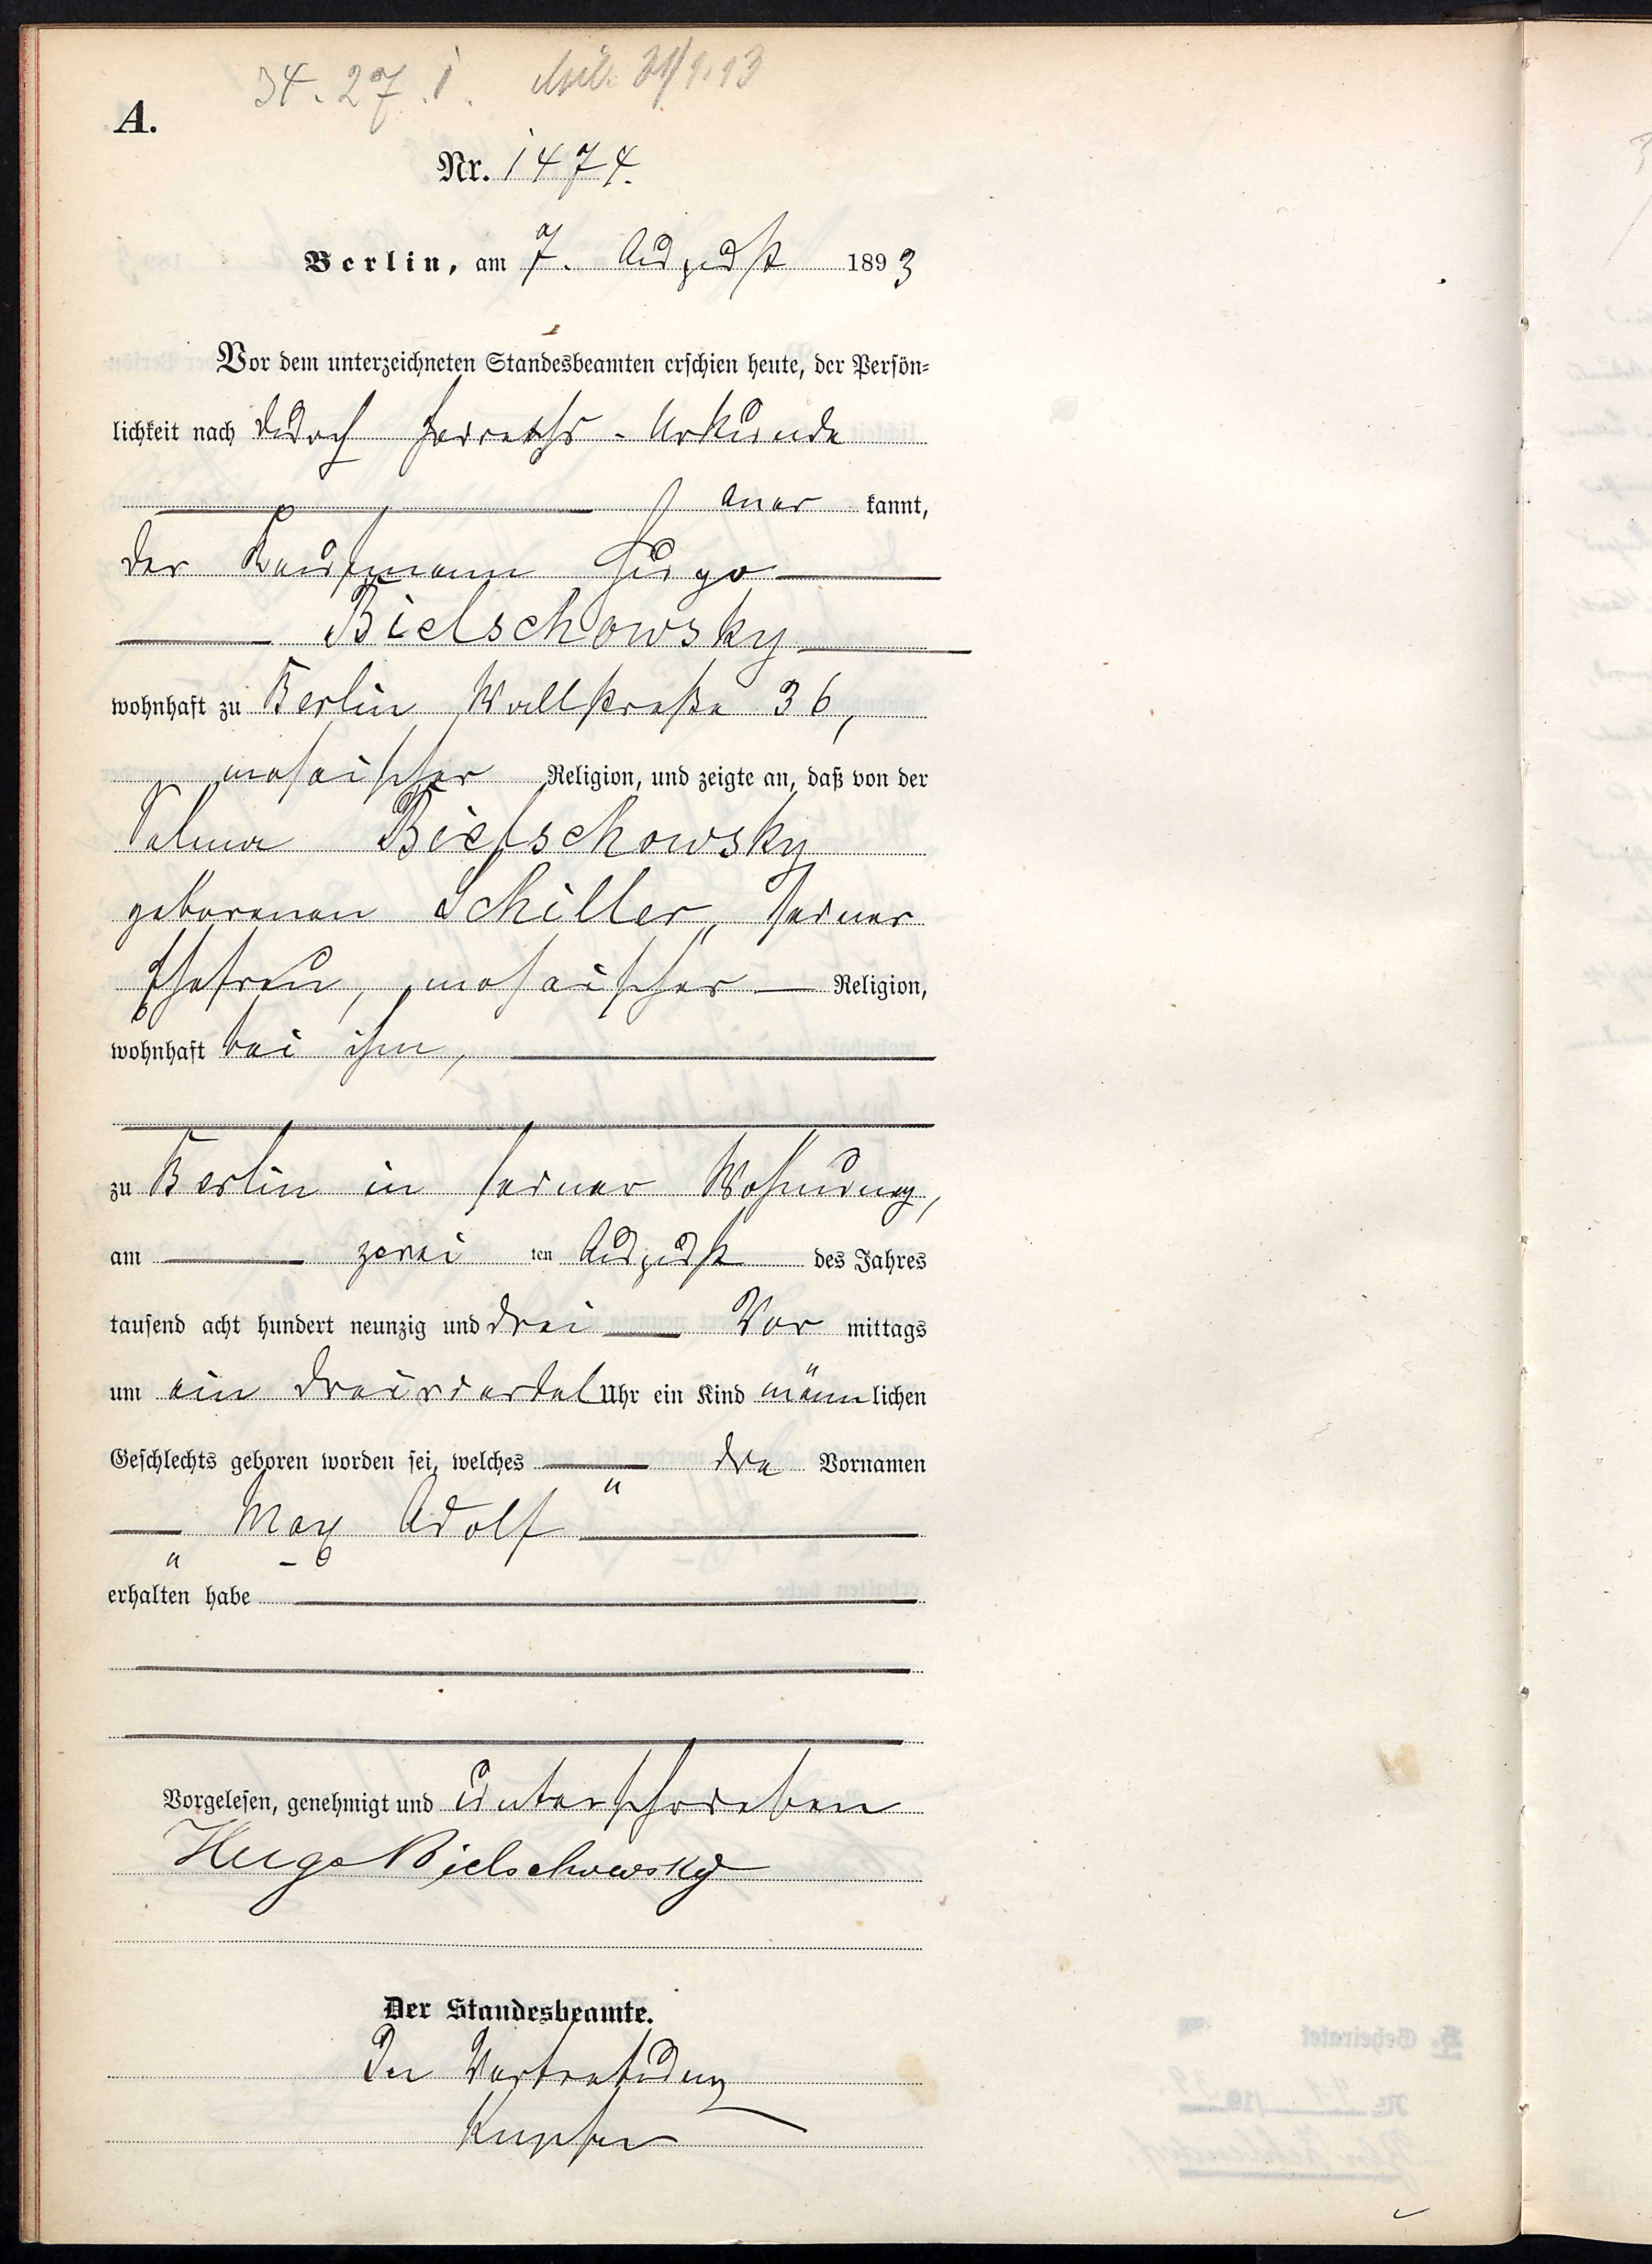 34. 27. I. 31/1.13
A.
Nr. 1474.
Berlin, am 7. August 1893
Vor dem unterzeichneten Standesbeamten erschien heute, der Persön-
lichkeit nach durch Heiraths-Urkunde
aner kannt,
der Kaufmann Hugo
Bielschowsky
wohnhaft zu Berlin Wallstraße 36,
mosaischer Religion, und zeigte an, daß von der
Bielschowsky
geborenen Schiller, seiner
Ehefrau, mosaischer Religion,
wohnhaft bei ihm,
zu Berlin in seiner Wohnung,
am zwei ten August des Jahres
tausend acht hundert neunzig und drei Vor mittags
um ein dreiviertel Uhr ein Kind männ lichen
Geschlechts geboren worden sei, welches die Vornamen
Max Adolf
erhalten habe
Vorgelesen, genehmigt und unterschrieben
Hugo Bielschowsky
Der Standesbeamte.
In Vertretung